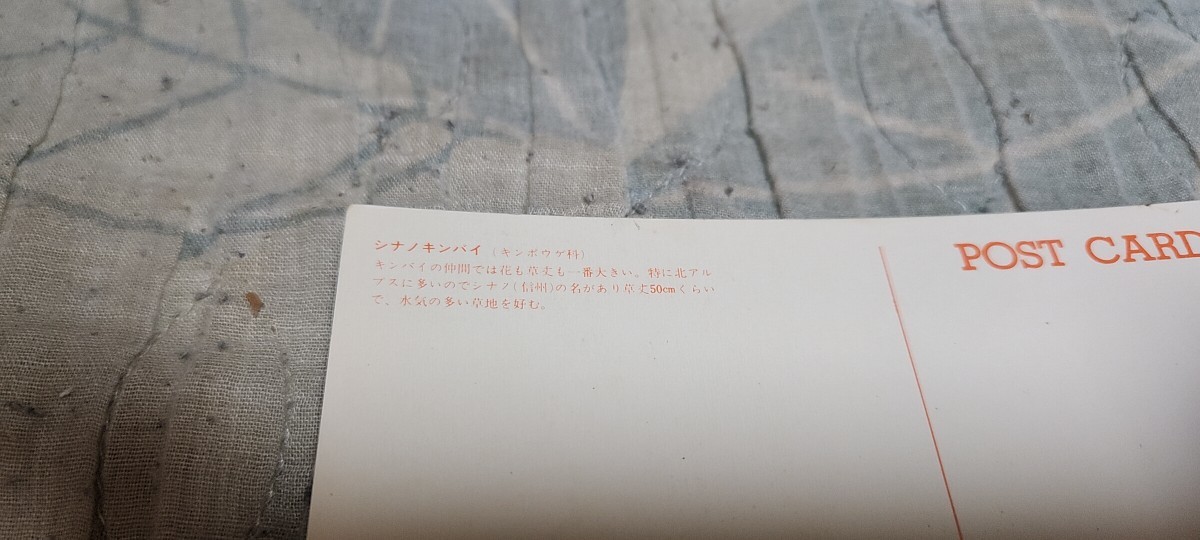 シナノキンバイ(キンポウゲ科)
キンバイの仲間では花も草丈も一番大きい。特に北アル
プスに多いのでシナノ(信州)の名があり草丈50cmくらい
で、水気の多い草地を好む。
POST CARD